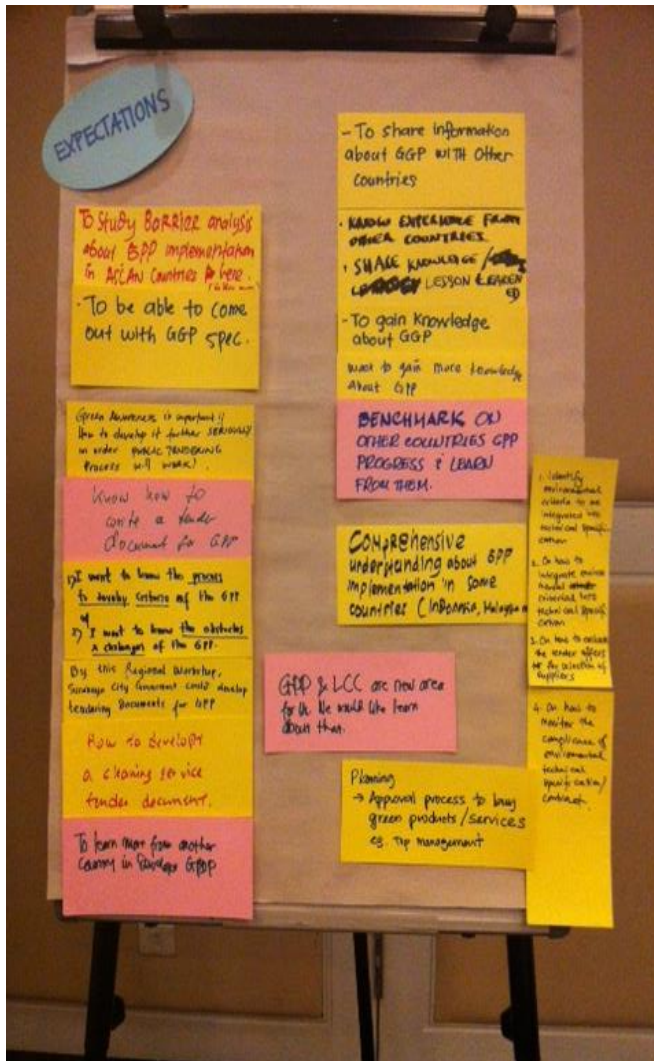 EXPECTATIONS
To Study BARRIER analysis
about GPP implementation
in ASEAN Countries
here.
- To be able to come
out with GGP spec.
Green Awareness is important!
How to develop it further SERIOUSLY
in order PUBLIC TENDERING
Process will work!
Know how to
write a tender
document for GPP
1) I want to know the process
to develop criteria of the GPP
2) I want to know the obstacles
& challenges of the GPP.
By this Regional Workshop,
Surabaya City Government could develop
tendering Documents for GPP
How to develop
a cleaning service
tender document.
To learn more from another
country in GPP
- To share information
about GGP WITH Other
countries
• KNOW EXPERIENCE FROM
OTHER COUNTRIES.
• SHARE KNOWLEDGE /
LESSON LEAREN
ED
- To gain knowledge
about GGP
want to gain more knowledge
about GPP
BENCHMARK ON
OTHER COUNTRIES GPP
PROGRESS & LEARN
FROM THEM.
COMPREHENSIVE
understanding about GPP
implementation in some
countries (Indonesia, Malaysia
GPP & LCC are new area
for Us. We would like learn
about that.
Planning
→ Approval process to buy
green products/services
eg. Top management
1. Identify
environmental
criteria to be
integrated into
technical specifi-
cation
2. On how to
integrate environ
mental
criteria into
technical specifi
cation
3. On how to evaluate
the tender offers
for selection of
suppliers
4. On how to
monitor the
compliance of
environmental
technical
specification/
contract.